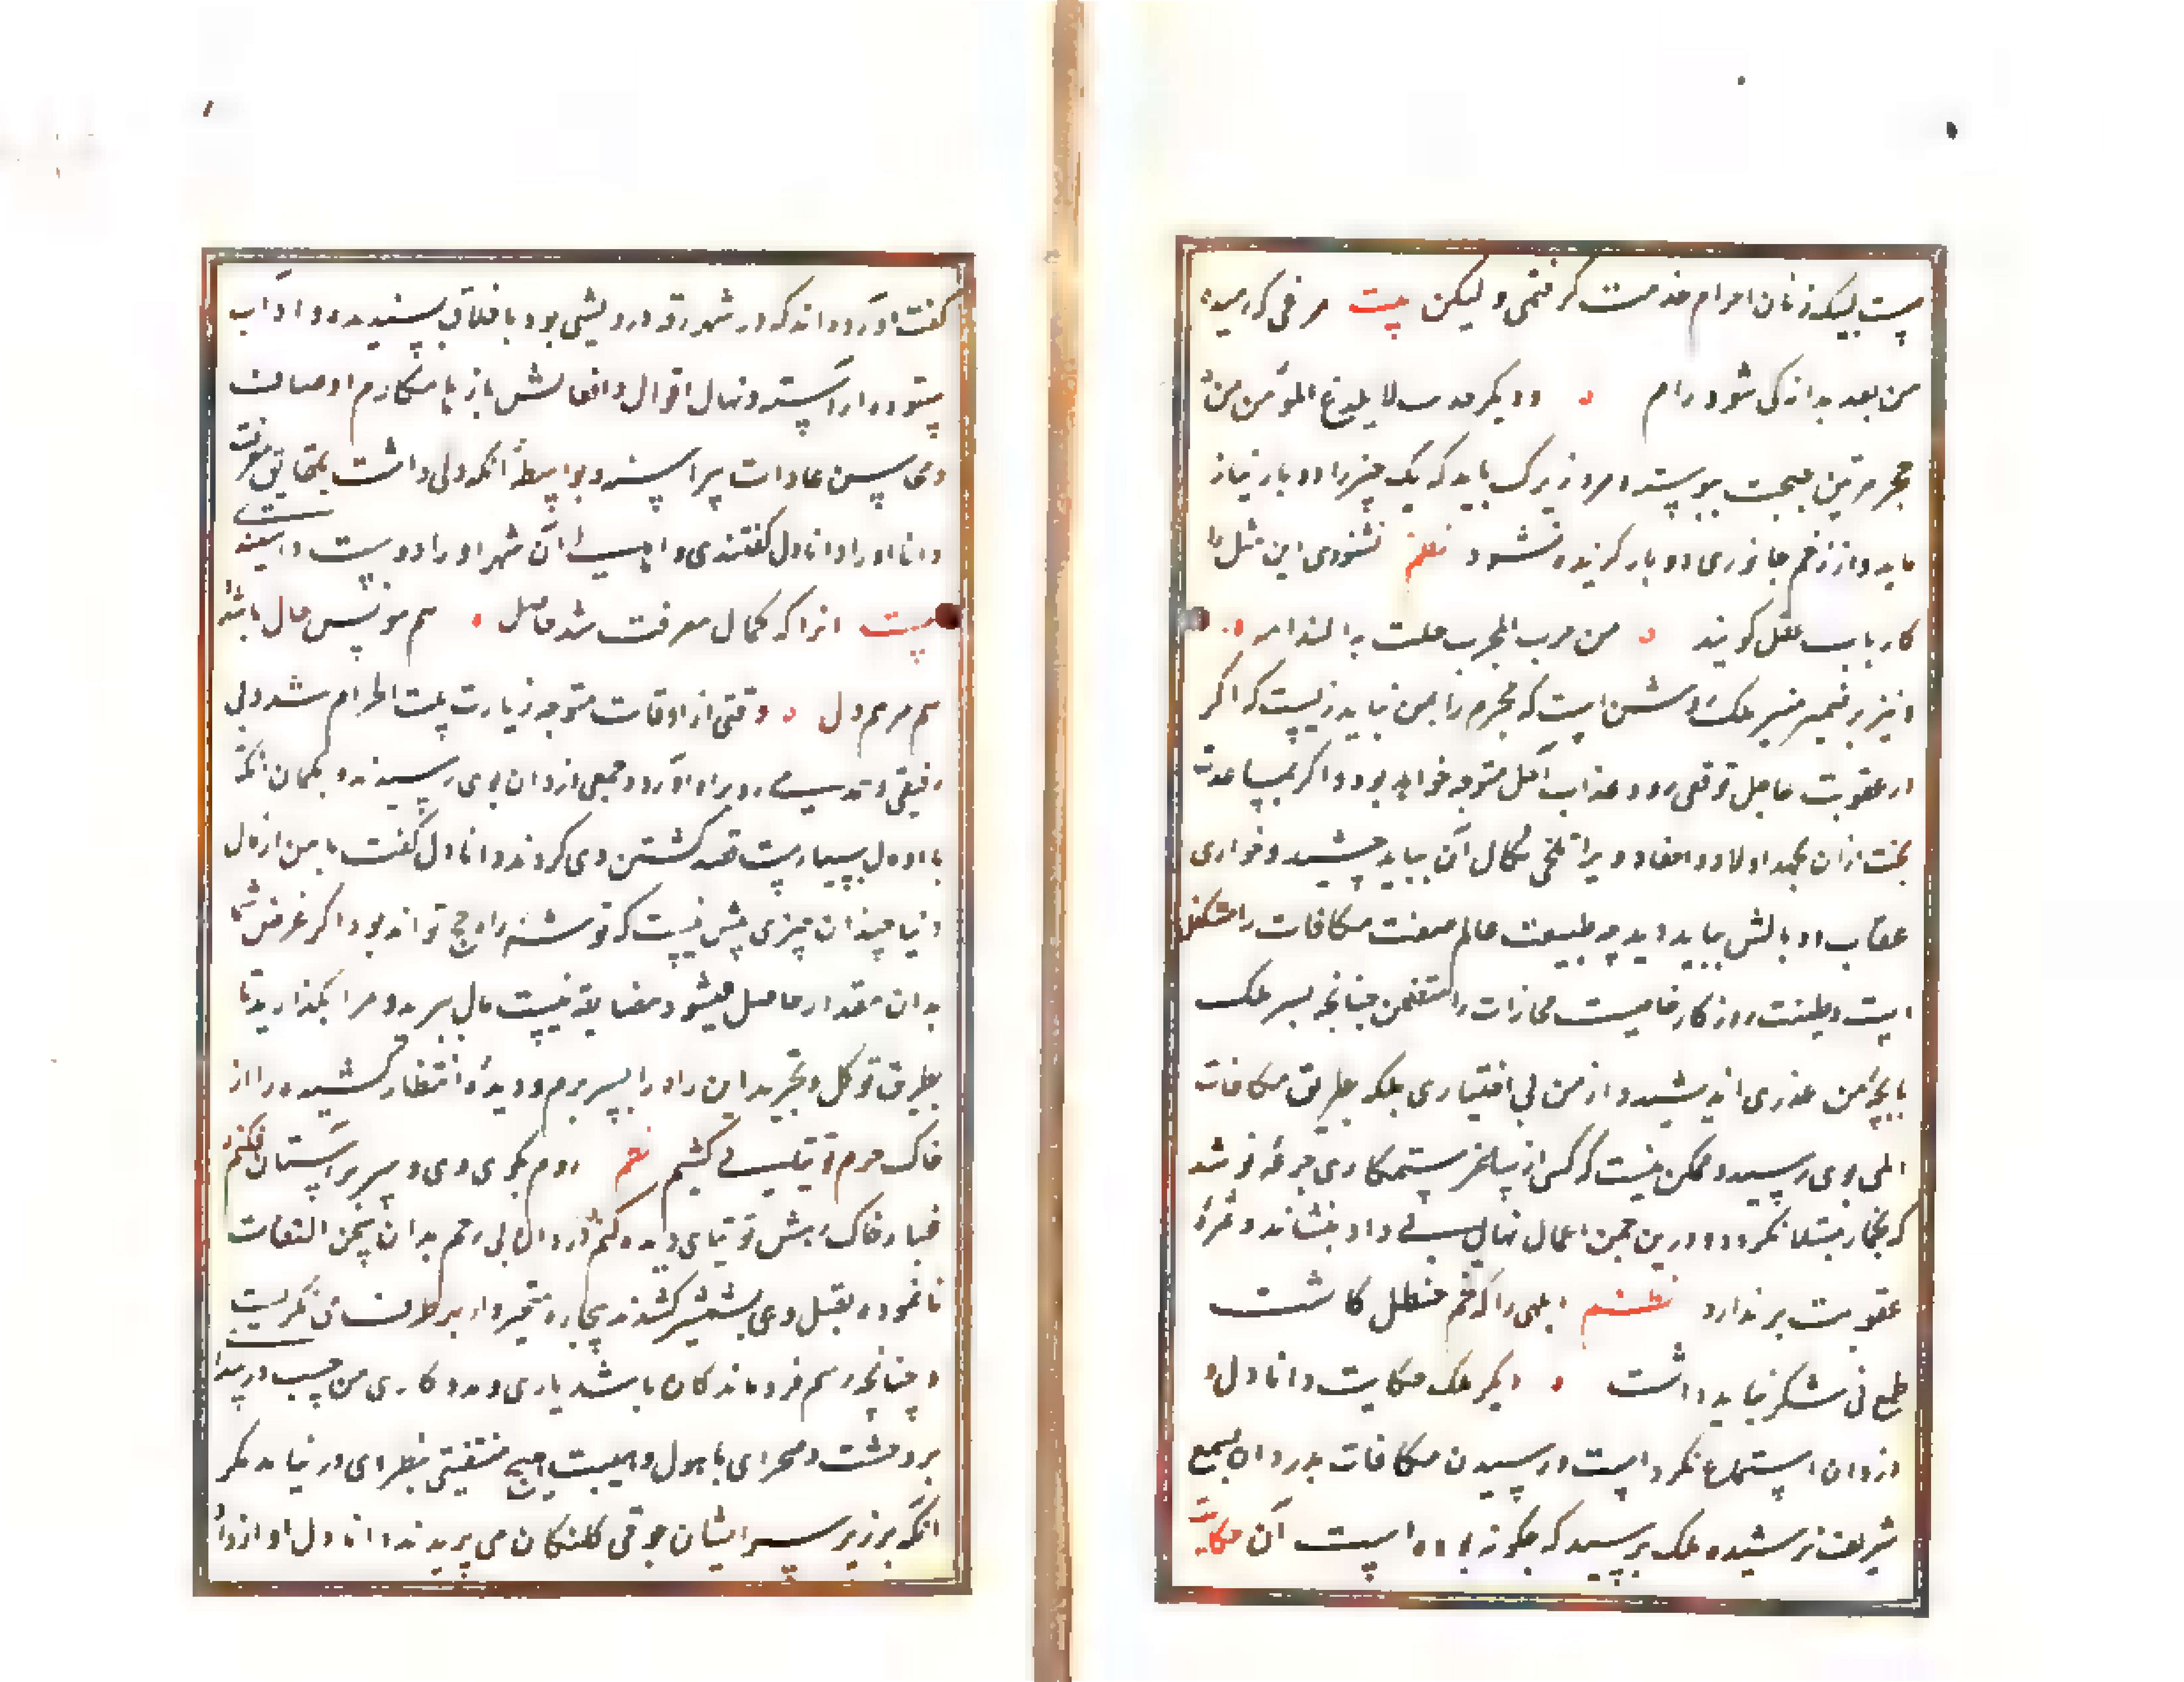 بست لبیک زنان احرام خدمت گرفتمی ولیکن بیت مرغی که رمیده
من بعد بدانه کی شود رام و دیگر حدیث لا یلدغ المؤمن من
جحر مرتین بصحت پیوسته و مرد زیرک باید که یک چیز را دو بار نیاز
ماید و از زخم جانوری دو بار گزیده نشود نظم نشنودی این مثل را
کارباب عقل گویند من جرب المجرب حلت به الندامه
و نیز بر ضمیر منیر ملک روشن است که مجرم را ایمن نباید زیست که اگر
در عقوبت عاجل توقفی رود عذاب آجل متوجه خواهد بود و اگر بمساعدت
بخت ازان بجهد اولاد و احفاد ویرا تلخی نکال آن بباید چشید و خواری
عقاب و وبالش بباید دید چه طبیعت عالم صفت مکافات را متکفل
است و طینت روزگار خاصیت مجازات را متضمن چنانچه پسر ملک
با بچهٔ من غدری اندیشید و از من بی اختیاری بلکه بطریق مکافات
المی بوی رسید و ممکن نیست که کس از ساغر ستمکاری جرعهٔ نوشد
که بخمار مبتلا نگردد و درین چمن اعمال نهال بی داد بنشاند و ثمرهٔ
عقوبت برندارد نظم ابلهی را که تخم حنظل کاشت
طمع نی شکر نباید داشت دیگر ملک حکایت دانا دل و
دزدان استماع نکرده است و رسیدن مکافات بدزدان بسمع
شریف نرسیده ملک پرسید که چگونه بوده است آن حکایت
گفت آورده اند که در شهر رقه درویشی بود باخلاق پسندیده و آداب
ستوده آراسته و نهال اقوال و افعالش بازهار مکارم اوصاف
و محاسن عادات پیراسته و بواسطهٔ آنکه دلی داشت بحقایق معرفت
دانا او را دانا دل گفتندی و اهالی آن شهر او را دوست داشتندی
بیت آنرا که کمال معرفت شد حاصل هم مونس حال باشد
هم مرهم دل وقتی از اوقات متوجه زیارت بیت الحرام شد و بی
رفیقی و ندیمی رو براه آورد و جمعی دزدان بوی رسیدند و بگمان آنکه
با او مال بسیار است قصد کشتن وی کردند دانا دل گفت با من از مال
دنیا چندان چیزی بیش نیست که توشهٔ راه حج تواند بود اگر غرض شما
بدان مقدار حاصل میشود مضایقه نیست مال ببرید و مرا بگذارید تا
بطریق توکل و تجرید این راه را بسر برم و دیدهٔ انتظار کشیده را از
خاک حرم توتیای کشم نظم روم بکوی وی و سر بر آستان فکنم
غبار خاک رهش توتیای دیده کنم دزدان بی رحم بدان سخن التفات
نانموده بقتل وی شمشیر کشیدند بیچاره متحیر وار بهر طرف می نگریست
و چنانچه رسم فروماندگان باشد یاری و مددکاری می جست و در پیدا
بر دهشت و صحرای با هول و هیبت هیچ متنفسی بنظر وی در نیامد مگر
آنکه بر زبر سر ایشان جوقی کلنگان می پریدند دانا دل آواز داد